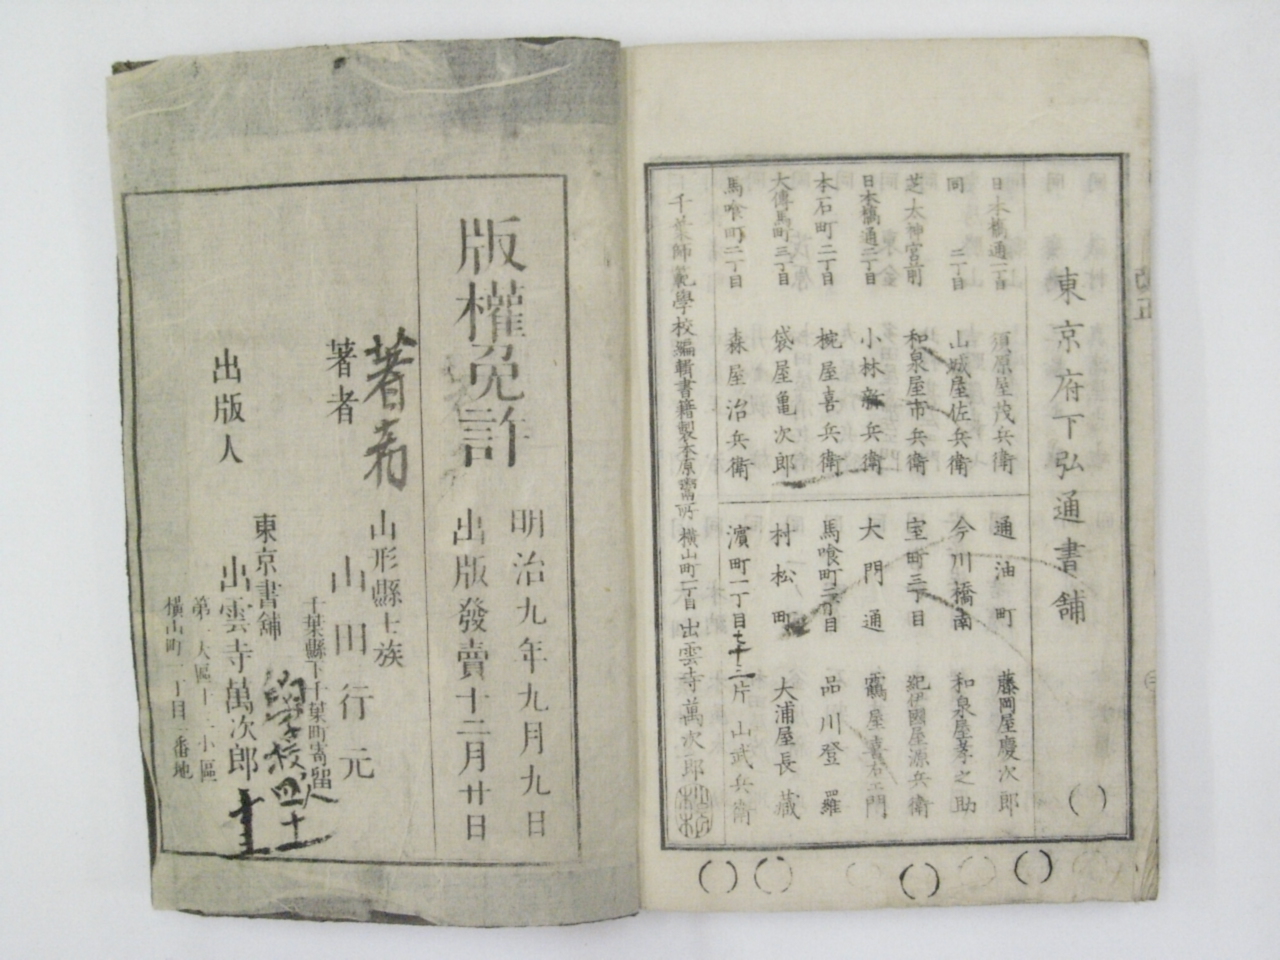 東京府下弘通書舗
日本橋通一丁目 須原屋茂兵衛
同 二丁目 山城屋佐兵衛
芝太神宮前 和泉屋市兵衛
日本橋通二丁目 小林新兵衛
本石町二丁目 椀屋喜兵衛
大傳馬町三丁目 袋屋亀次郎
馬喰町二丁目 森屋治兵衛
通油町 藤岡屋慶次郎
今川橋南 和泉屋孝之助
室町三丁目 紀伊國屋源兵衛
大門通 鶴屋喜右エ門
馬喰町二丁目 品川登羅
村松町 大浦屋長藏
濱町一丁目 片山武兵衛
千葉師範學校編輯書籍製本原賣所 横山町一丁目 出雲寺萬次郎
版權免許
明治九年九月九日
出版發賣十二月廿日
著者
山形縣士族
山川行元
千葉縣下千葉町寄留
著者
出版人
東京書舗
出雲寺萬次郎
第一大區十三小區
横山町一丁目一番地
學校